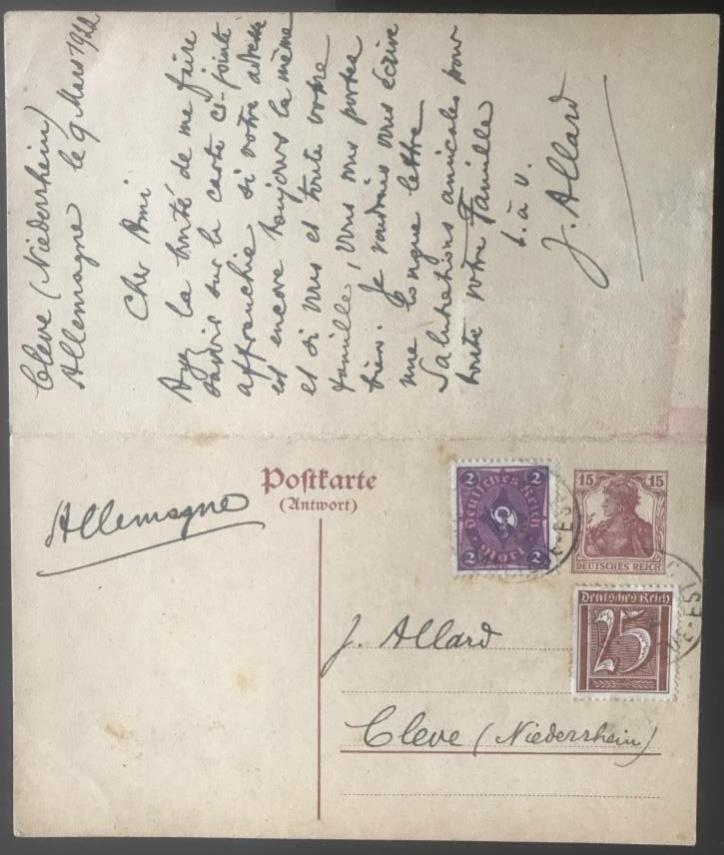 Cleve (Niederrhein)
Allemagne le 9 Mars 1922
Cher Ami
Ayez la bonté de me faire
savoir sur la carte ci-jointe
affranchie si votre adresse
est encore toujours la même
et si vous et toute votre
famille, vous vous portez
bien. Je voudrais vous écrire
une longue lettre
Salutations amicales pour
toute votre Famille
t. à v.
J. Allard
Postkarte
(Antwort)
Allemagne
2 2
Deutsches Reich
Mark
2 2
15 15
DEUTSCHES REICH
Deutsches Reich
25
J. Allard
Cleve (Niederrhein)